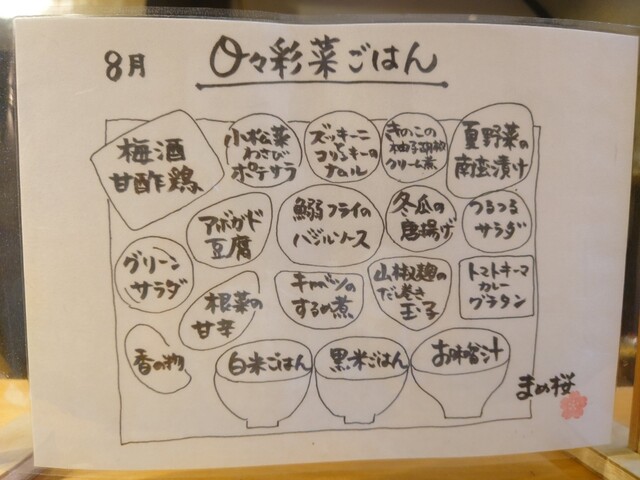 8月
日々彩菜ごはん
梅酒
甘酢鶏
小松菜
わさび
ポテサラ
ズッキーニ
と
コリンキーの
ナムル
きのこの
柚子胡椒
クリーム煮
夏野菜の
南蛮漬け
アボガド
豆腐
鰯フライの
バジルソース
冬瓜の
唐揚げ
つるつる
サラダ
グリーン
サラダ
根菜の
甘辛
キャベツの
するめ煮
山椒麹の
だし巻き
玉子
トマトキーマ
カレー
グラタン
香の物
白米ごはん
黒米ごはん
お味噌汁
まめ桜